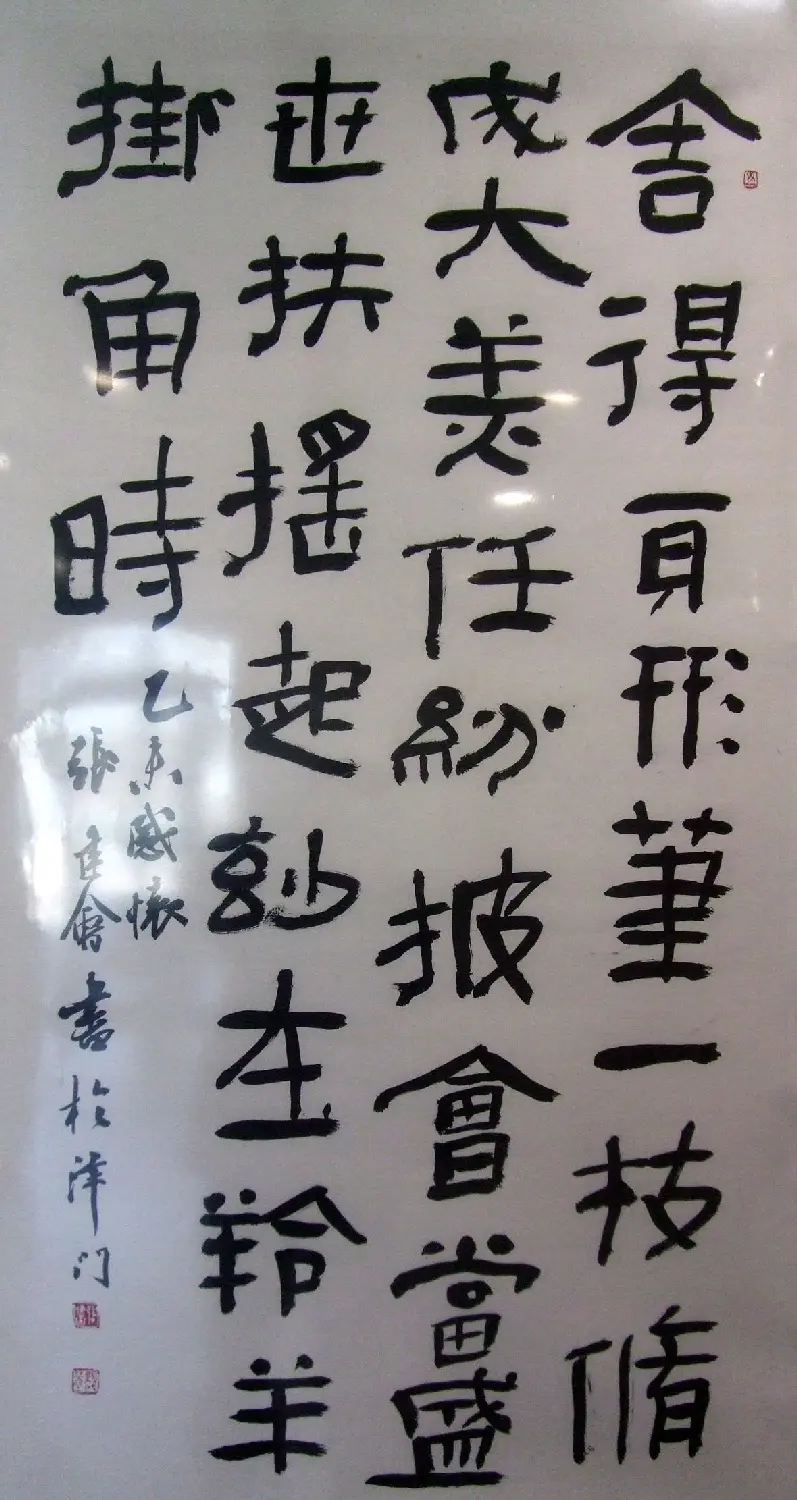 舍得百形筆一枝脩
成大美任紛披會當盛
世扶搖起玅在羚羊
掛角時乙未感懷
張建會書於津门